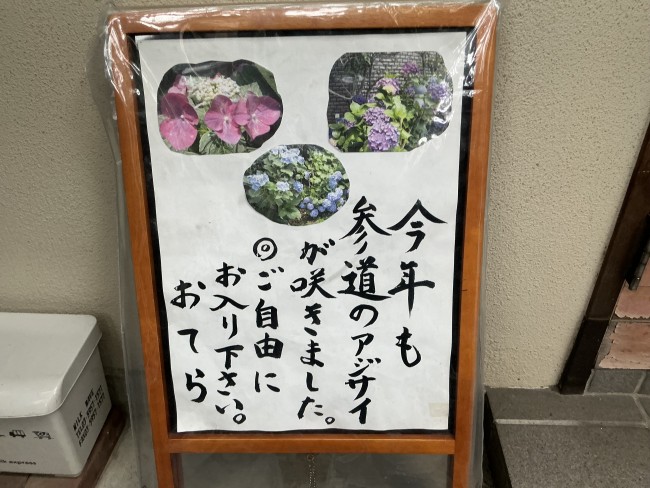 今年も
参道のアジサイ
が咲きました。
◎ご自由に
お入り下さい。
おてら
MILK BOX
express